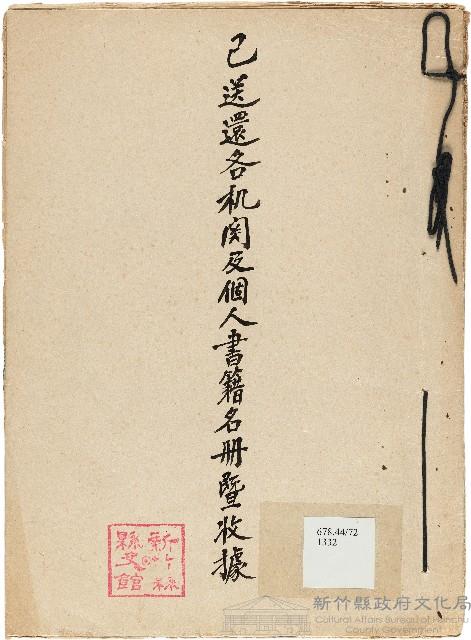 已送還各机関及個人書籍名册暨收據
678.44/72
1332
新竹縣縣史館
新竹縣政府文化局
Cultural Affairs Bureau of Hsinchu
County Government